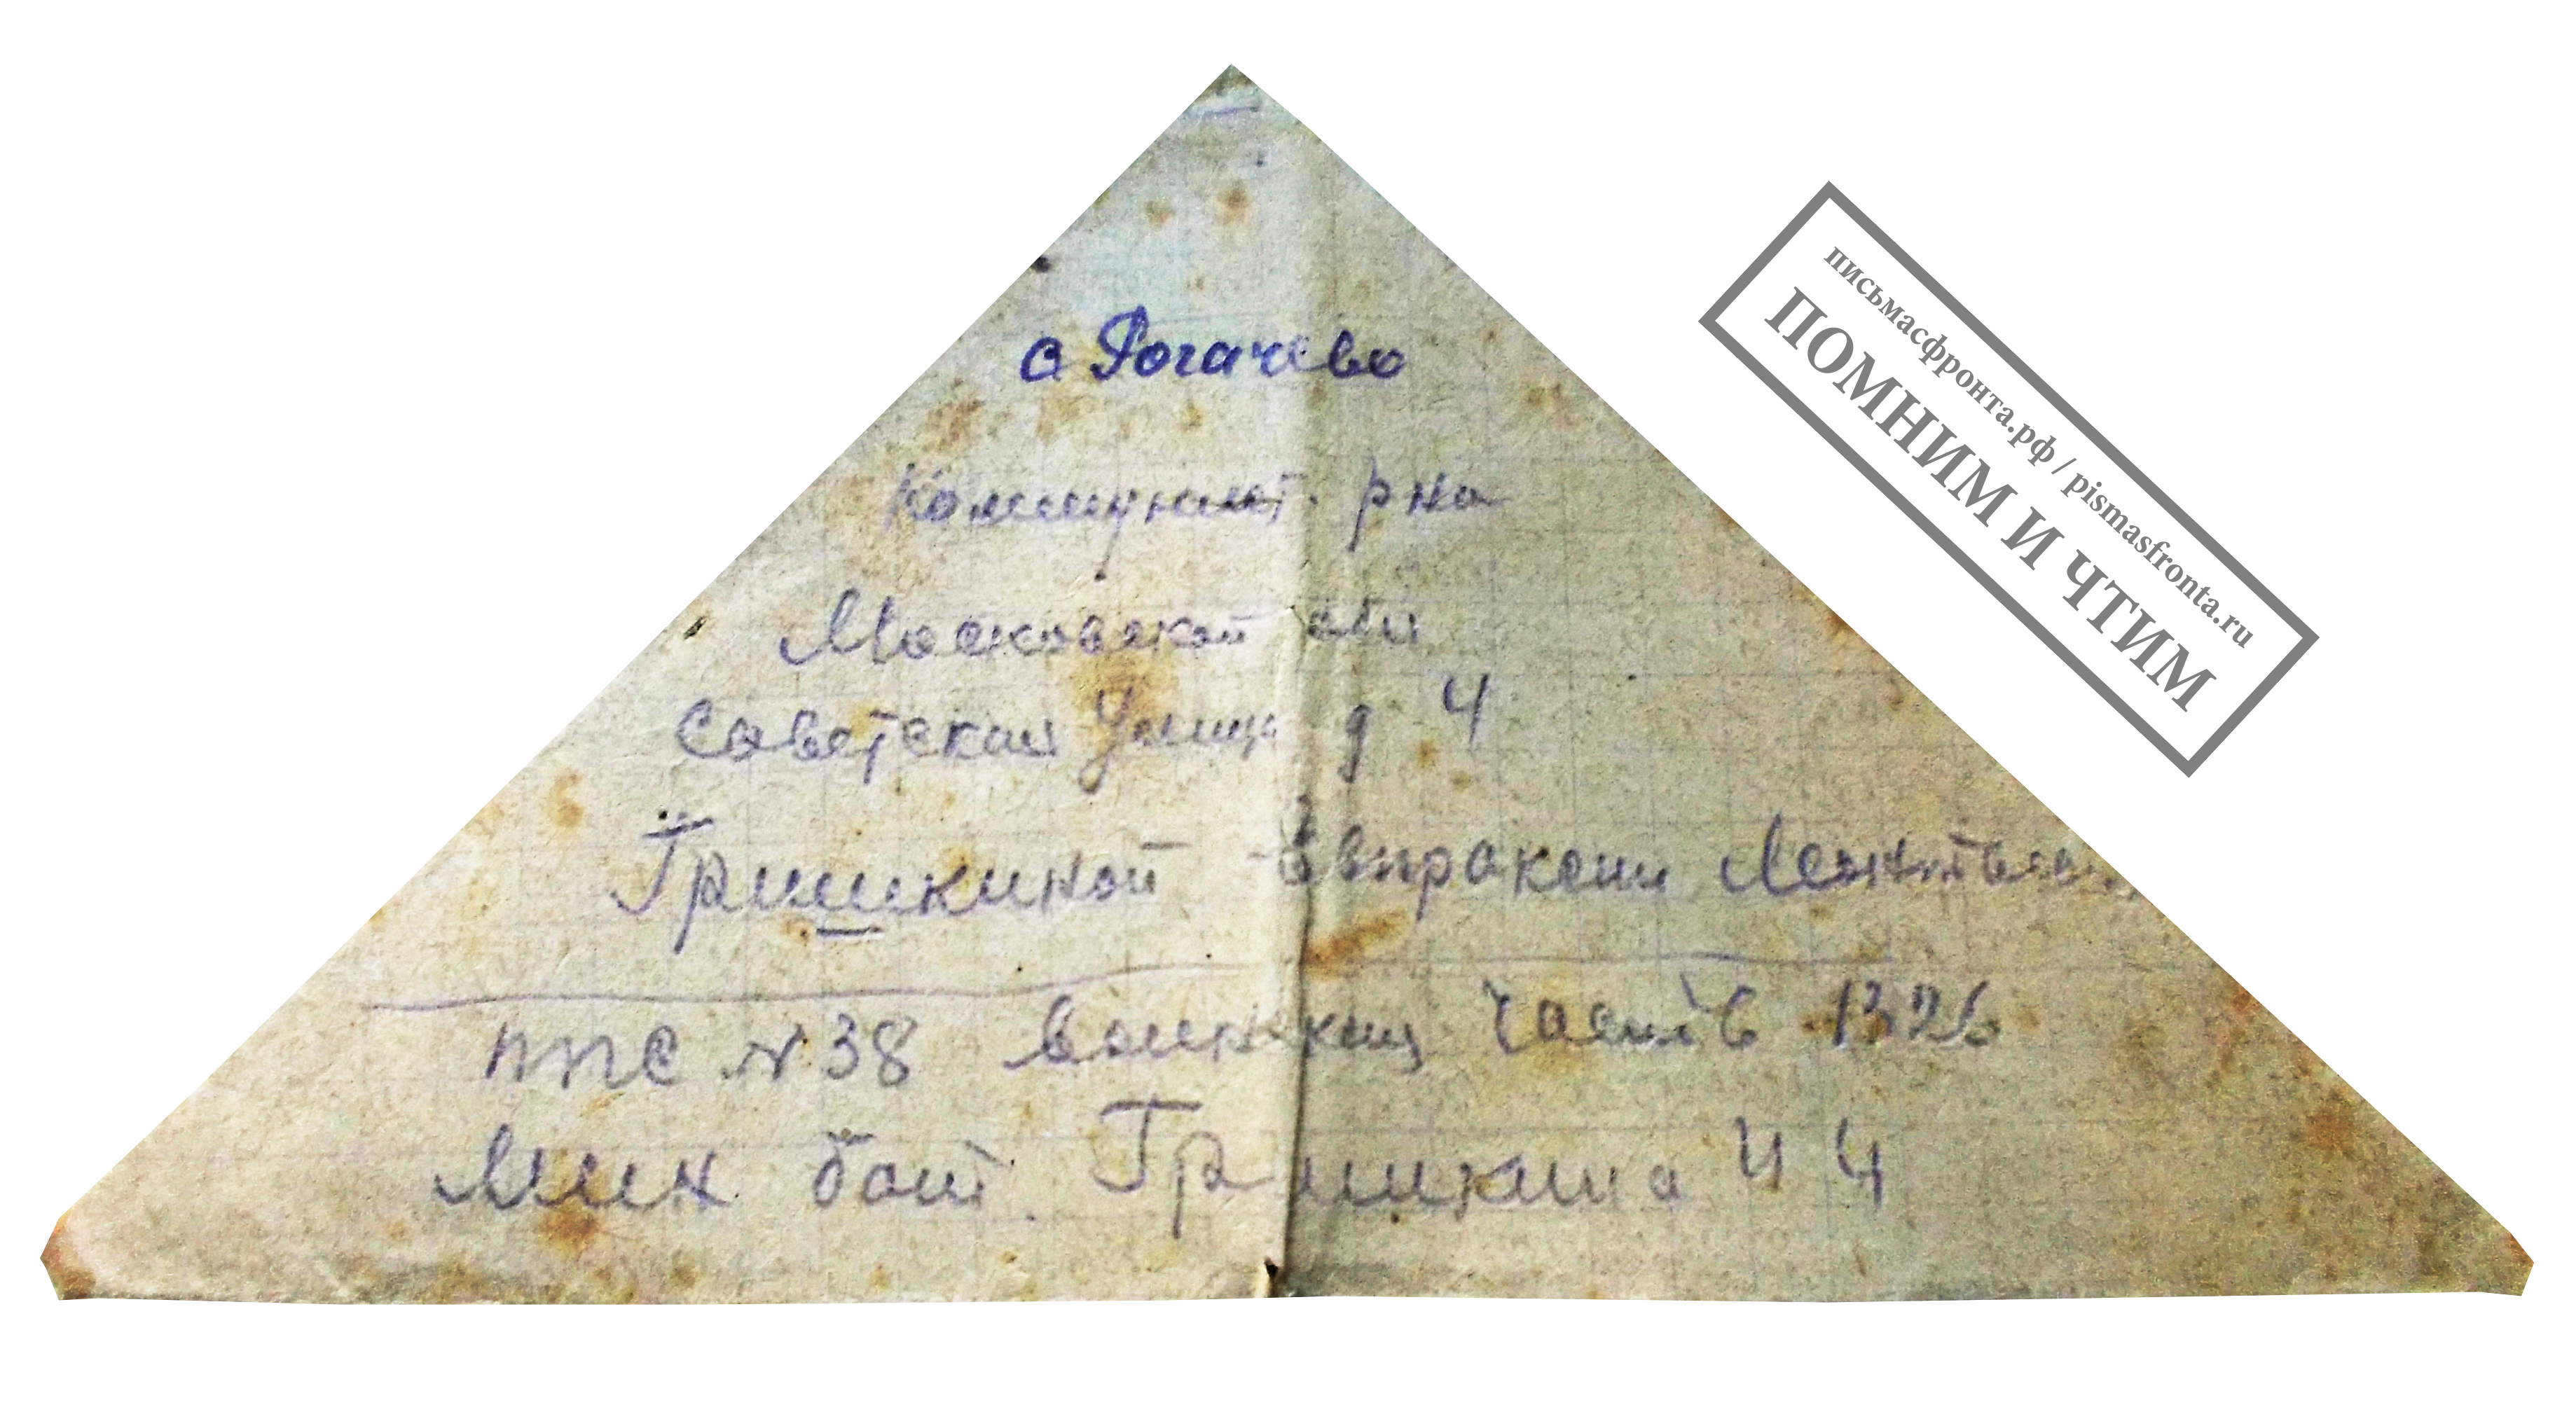 с Рогачево
Коммунист. рна
Московской обл
Советская Улица д 4
Гришкиной
ппС N 38 часть 1326
Мин бат. Гришкина
письмасфронта.рф / pismasfronta.ru
ПОМНИМ И ЧТИМ